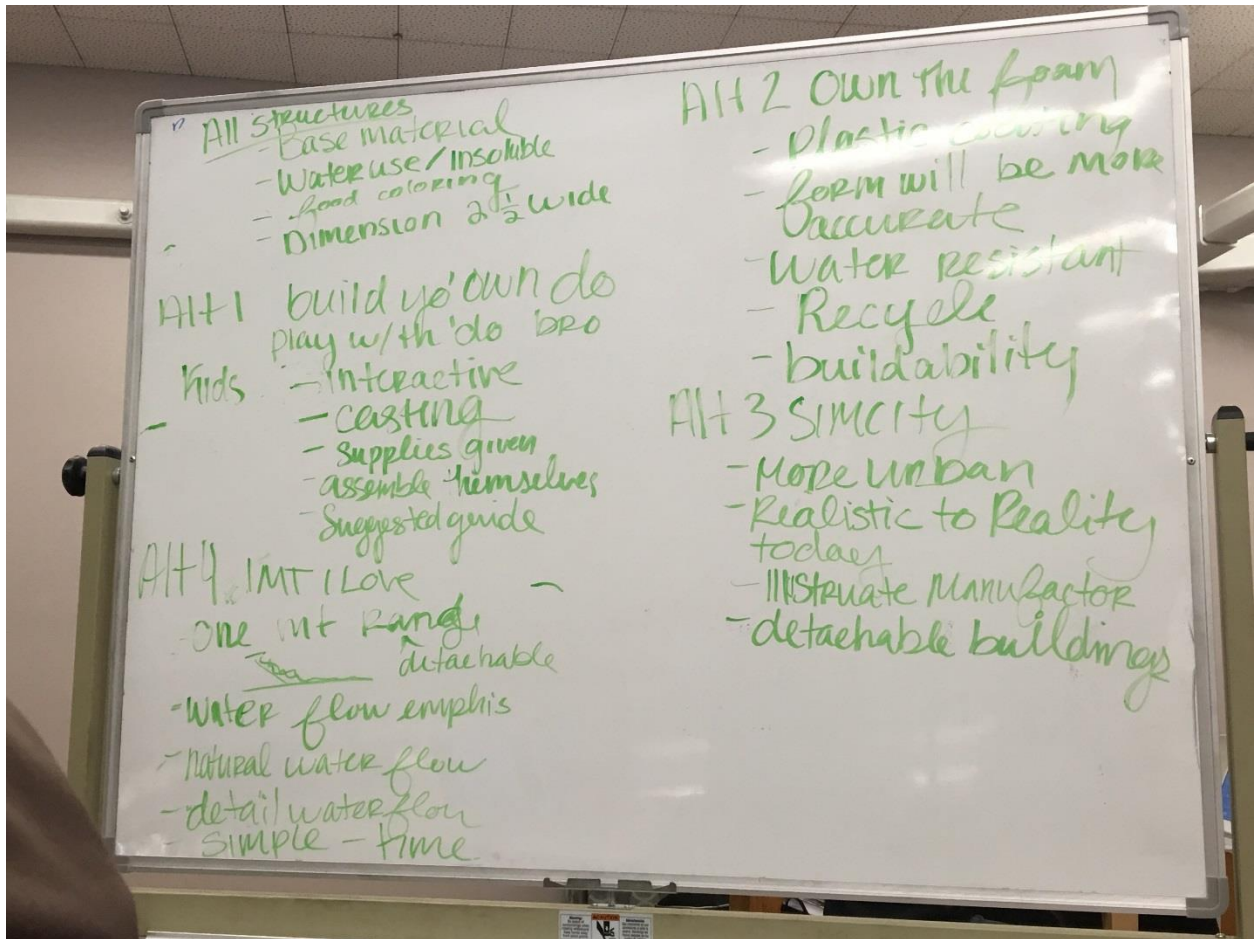 All structures
- Base material
- Water use/Insoluble
- food coloring
- Dimension 2 1/2 wide
Alt 1 build yo' own do
play w/th 'do bro
Kids - interactive
- casting
- supplies given
- assemble themselves
- Suggested guide
Alt 4 1MT 1 Love
- One mt Range
detachable
- water flow emphis
- natural water flow
- detail water flow
- simple - time
Alt 2 Own The foam
- Plastic coating
- form will be more
accurate
- Water Resistant
- Recycle
- buildability
Alt 3 SIMCITY
- More urban
- Realistic to Reality
today
- Illistruate Manufactor
- detachable buildings